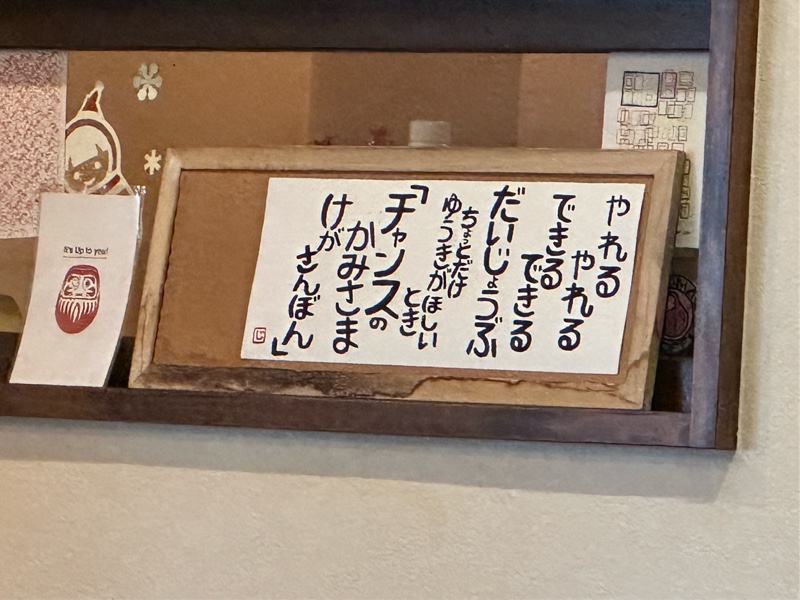 やれる
やれる
できる
できる
だいじょうぶ
ちょっとだけ
ゆうきがほしい
とき
「チャンスの
かみさま
けが
さんぼん」
It's Up to you!